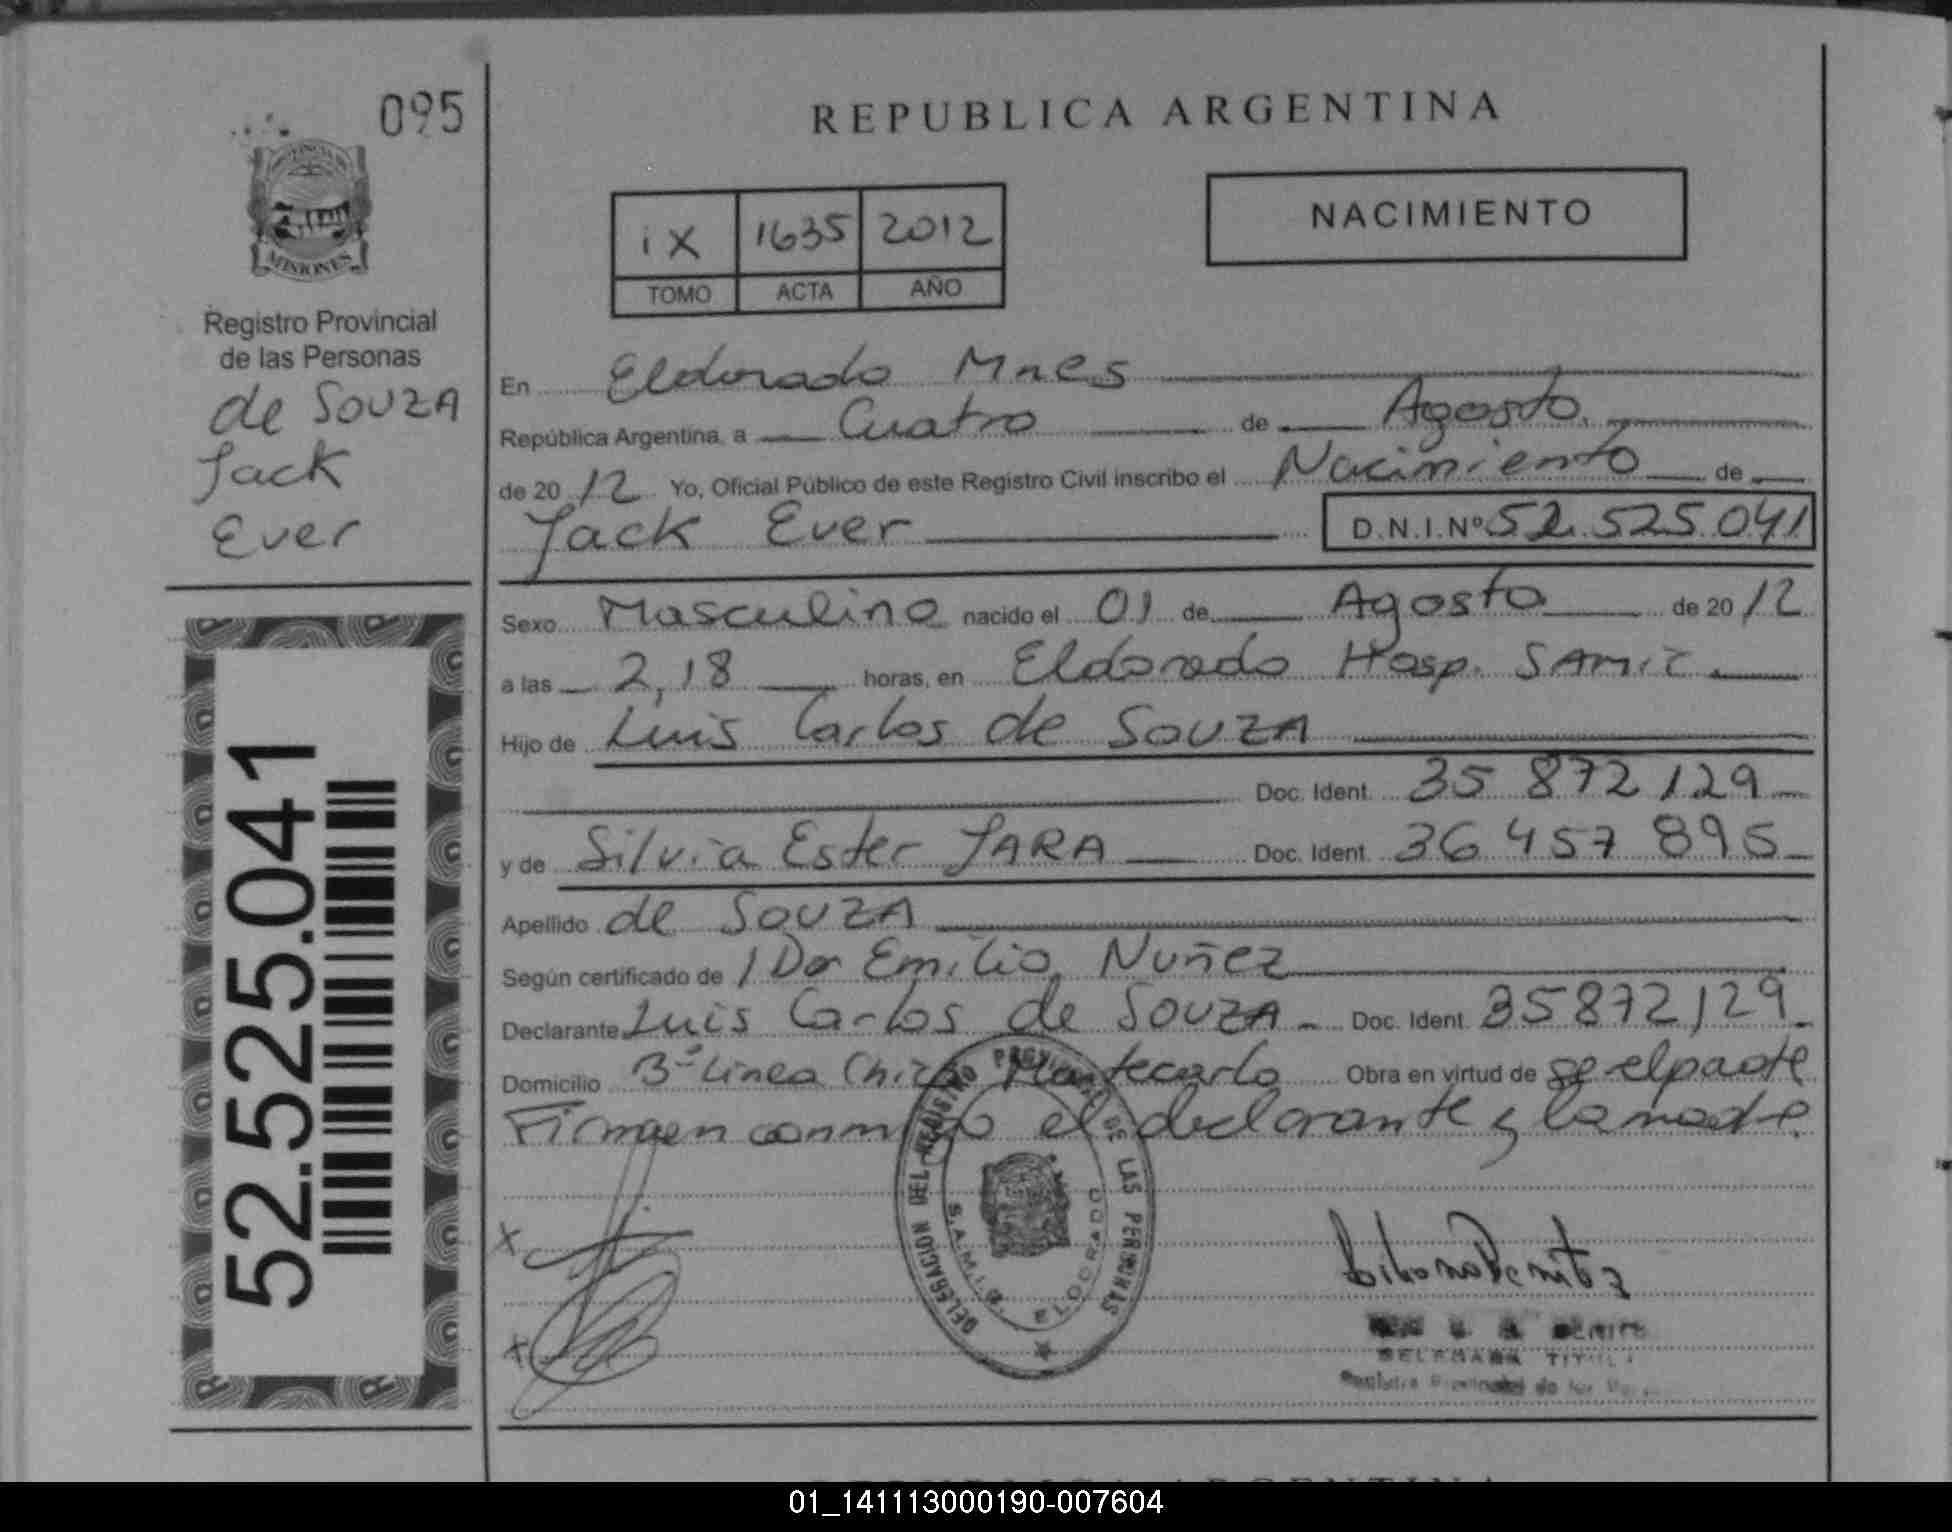 095
PROVINCIA DE
MISIONES
Registro Provincial
de las Personas
de SOUZA
Jack
Ever
52.525.041
REPUBLICA ARGENTINA
NACIMIENTO
iX 1635 2012
TOMO ACTA AÑO
En Eldorado Mnes
República Argentina, a Cuatro de Agosto
de 2012 Yo, Oficial Público de este Registro Civil inscribo el Nacimiento de
Jack Ever D.N.I.Nº 52.525.041
Sexo Masculino nacido el 01 de Agosto de 2012
a las 2,18 horas, en Eldorado Hosp. SAMIC
Hijo de Luis Carlos de SOUZA
Doc. Ident. 35 872 129
y de Silvia Ester JARA Doc. Ident. 36 457 895
Apellido de SOUZA
Según certificado de 1 Dor Emilio Nuñez
Declarante Luis Carlos de SOUZA Doc. Ident. 35872129
Domicilio 3ª Linea Chica Montecarlo Obra en virtud de se el padre
Firman conmigo el declarante y la madre.
DELEGACION DEL REGISTRO PROVINCIAL DE LAS PERSONAS
S.A.M.I.C. ELDORADO
x
x
DELEGADA TITULAR
Registro Provincial de las
01_141113000190-007604